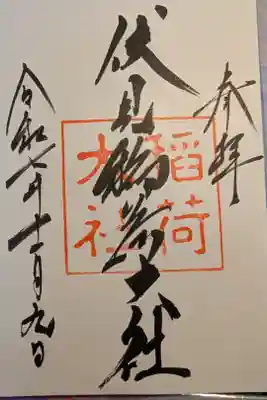 奉拝
伏見稲荷大社
稲荷大社
令和七年十一月九日